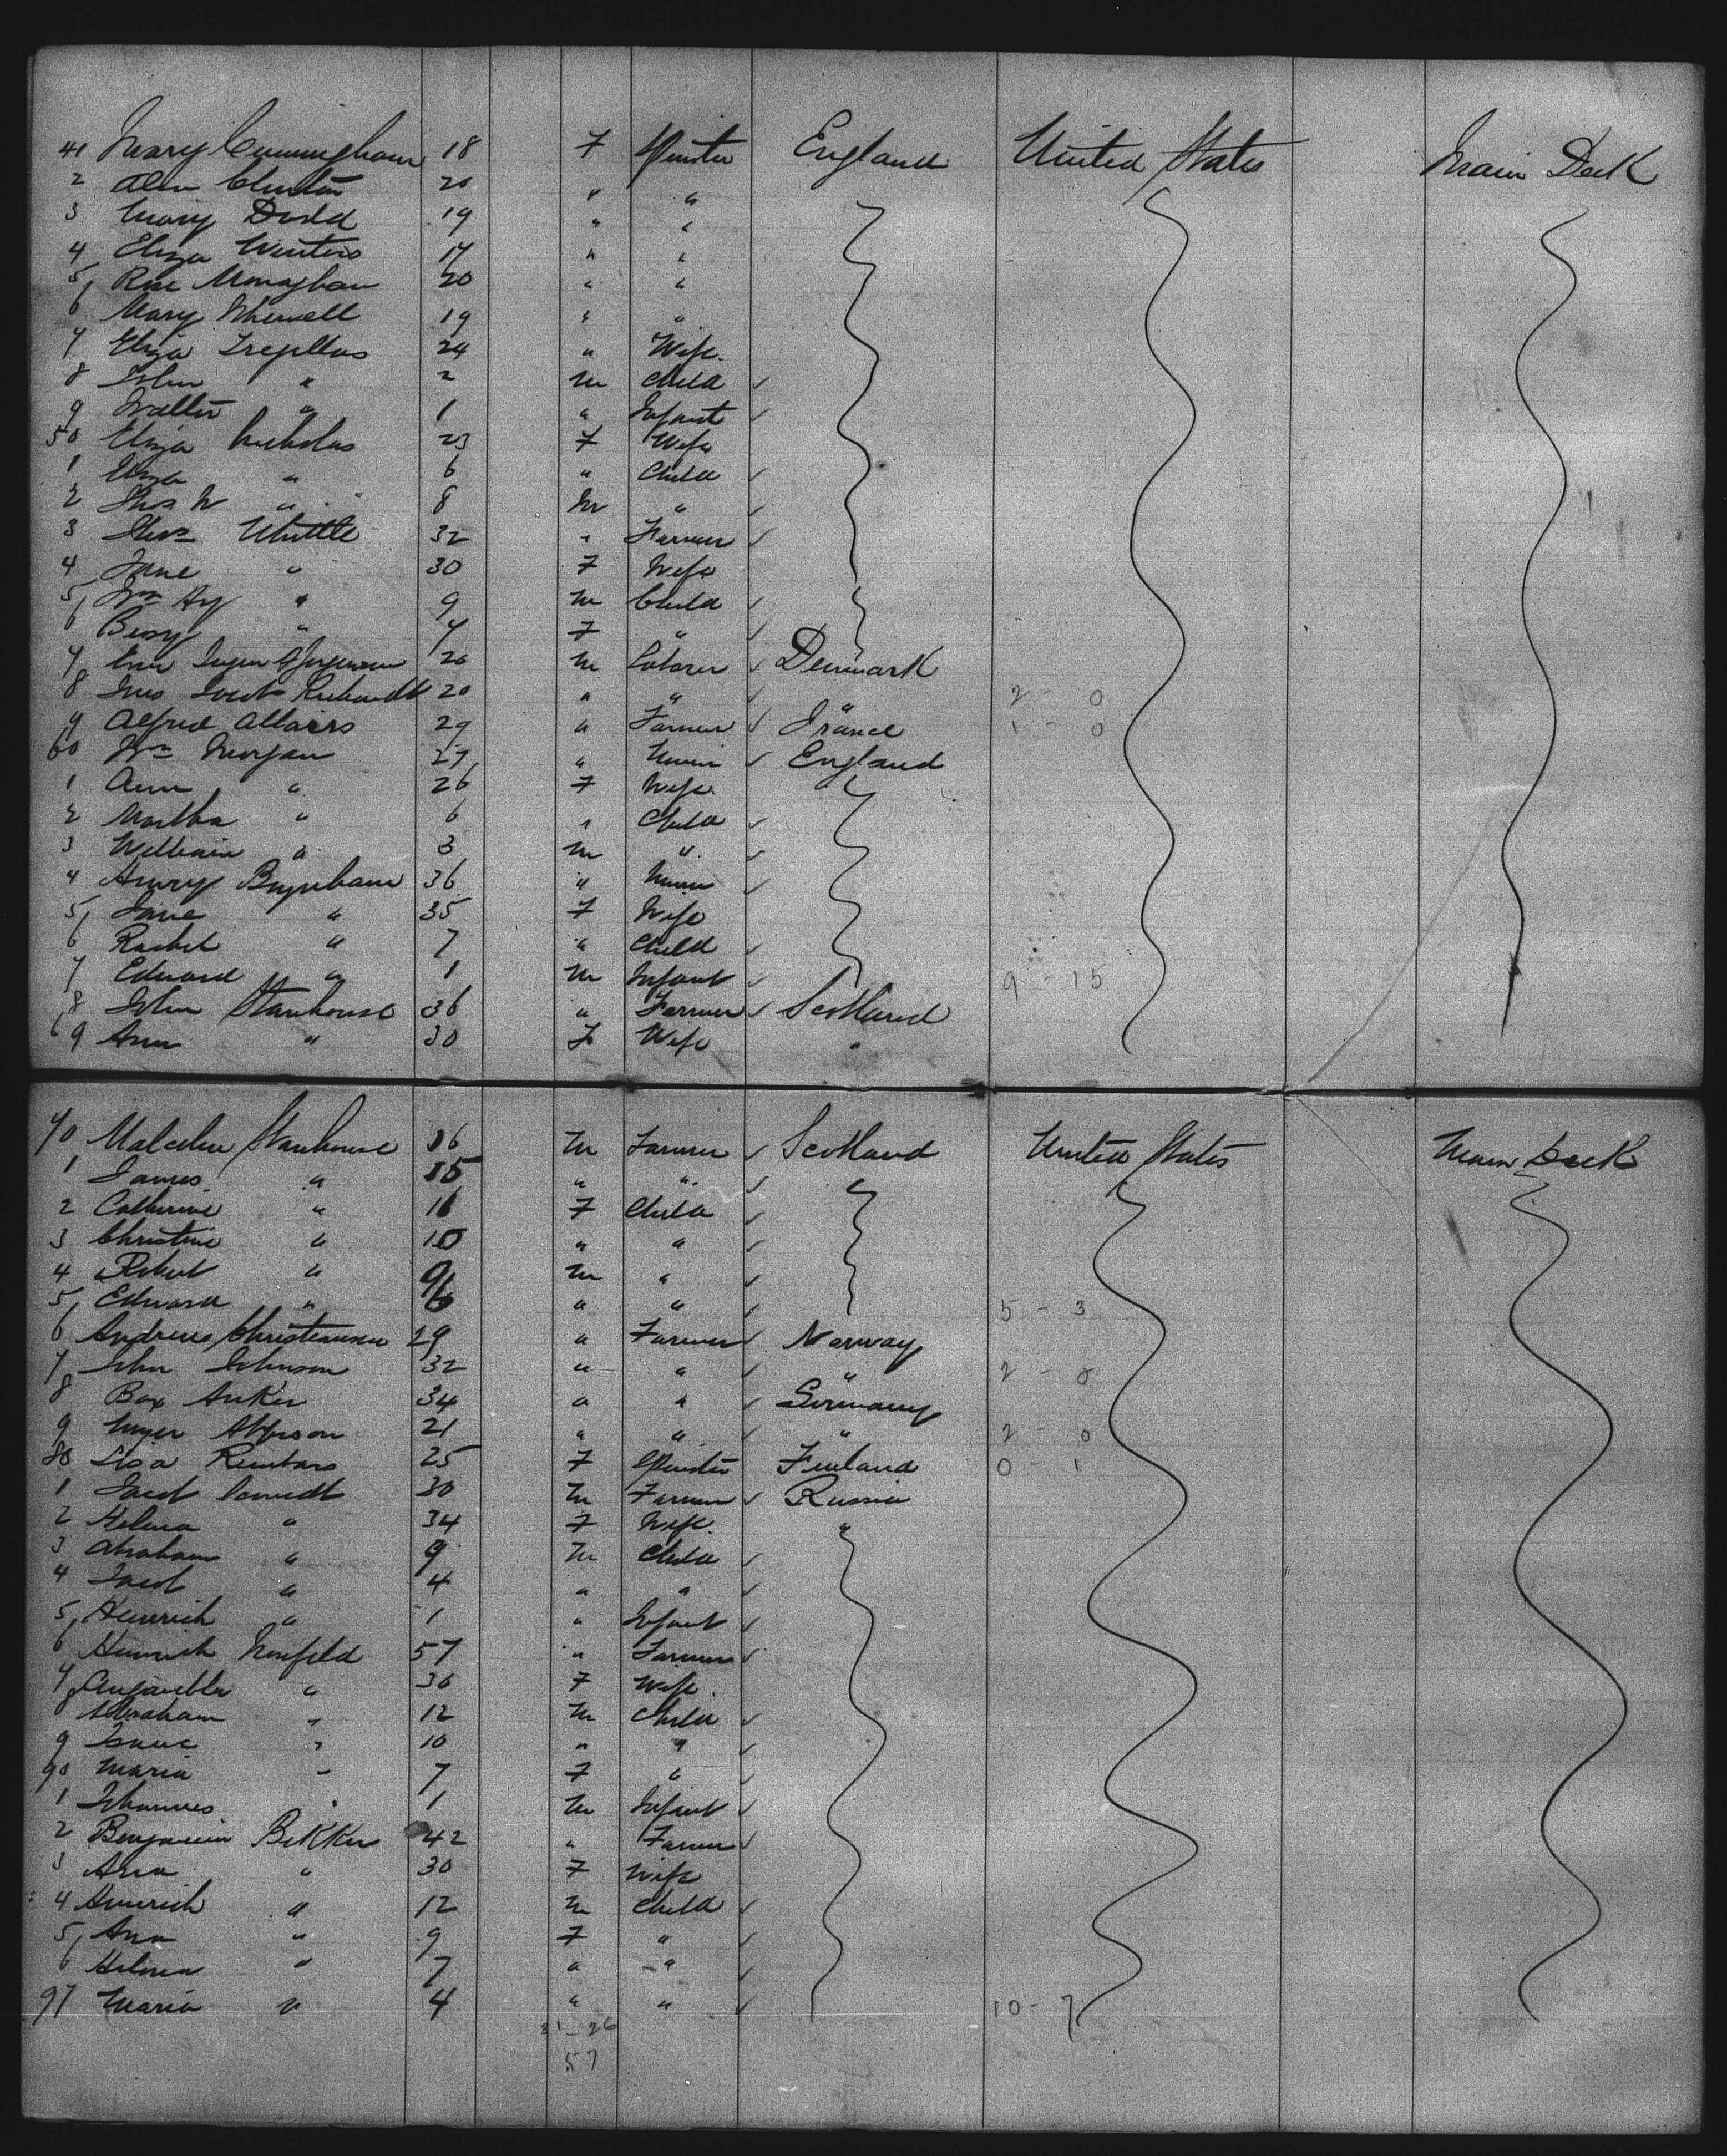 41 Mary Cunningham 18 F Spinster England United States Main Deck
2 Clinton 20 " "
3 Mary Dodd 19 " "
4 Eliza Winters 17 " "
5 Rose Monaghan 20 " "
6 Mary 19 " "
7 Eliza Tregellas 24 " Wife
8 John " 2 M Child
9 Walter " 1 " Infant
50 Eliza Nicholas 23 F Wife
1 Eliza " 6 " Child
2 Thos W " 8 M "
3 Thos Whittle 32 " Farmer
4 Jane " 30 F Wife
5 Wm Hy " 9 M Child
6 Bessy " 7 F "
7 20 M Laborer Denmark
8 Jens 20 " " " 2 - 0
9 Alfred 29 " Farmer France 1 - 0
60 Wm Morgan 27 " Miner England
1 Ann " 26 F Wife
2 Martha " 6 " Child
3 William " 3 M "
4 Henry 36 " Miner
5 Jane " 35 F Wife
6 Rachel " 7 " Child
7 Edward " 1 M Infant 9 - 15
8 John Stanhouse 36 " Farmer Scotland
69 Ann " 30 F Wife "
70 Malcolm Stanhouse 16 M Farmer Scotland United States Main Deck
1 James " 15 " "
2 Catherine " 11 F Child
3 Christine " 10 " "
4 Robert " 9 M "
5 Edward " 6 " " 5 - 3
6 Andreas Christiansen 29 " Farmer Norway
7 John Johnson 32 " " " 2 - 0
8 Anker 34 " " Germany
9 21 " " " 2 - 0
80 Lisa 25 F Spinster Finland 0 - 1
1 Jacob 30 M Farmer Russia
2 Helena " 34 F Wife "
3 Abraham " 9 M Child
4 Jacob " 4 " "
5 Heinrich " 1 " Infant
6 Heinrich Neufeld 57 " Farmer
7 " 36 F Wife
8 Abraham " 12 M Child
9 Isaac " 10 " "
90 Maria " 7 F "
1 Johannes " 1 M Infant
2 Benjamin Bekker 42 " Farmer
3 Ana " 30 F Wife
4 Heinrich " 12 M Child
5 Ana " 9 F "
6 Helena " 7 " "
97 Maria " 4 " " 10 - 7
31 - 26
57